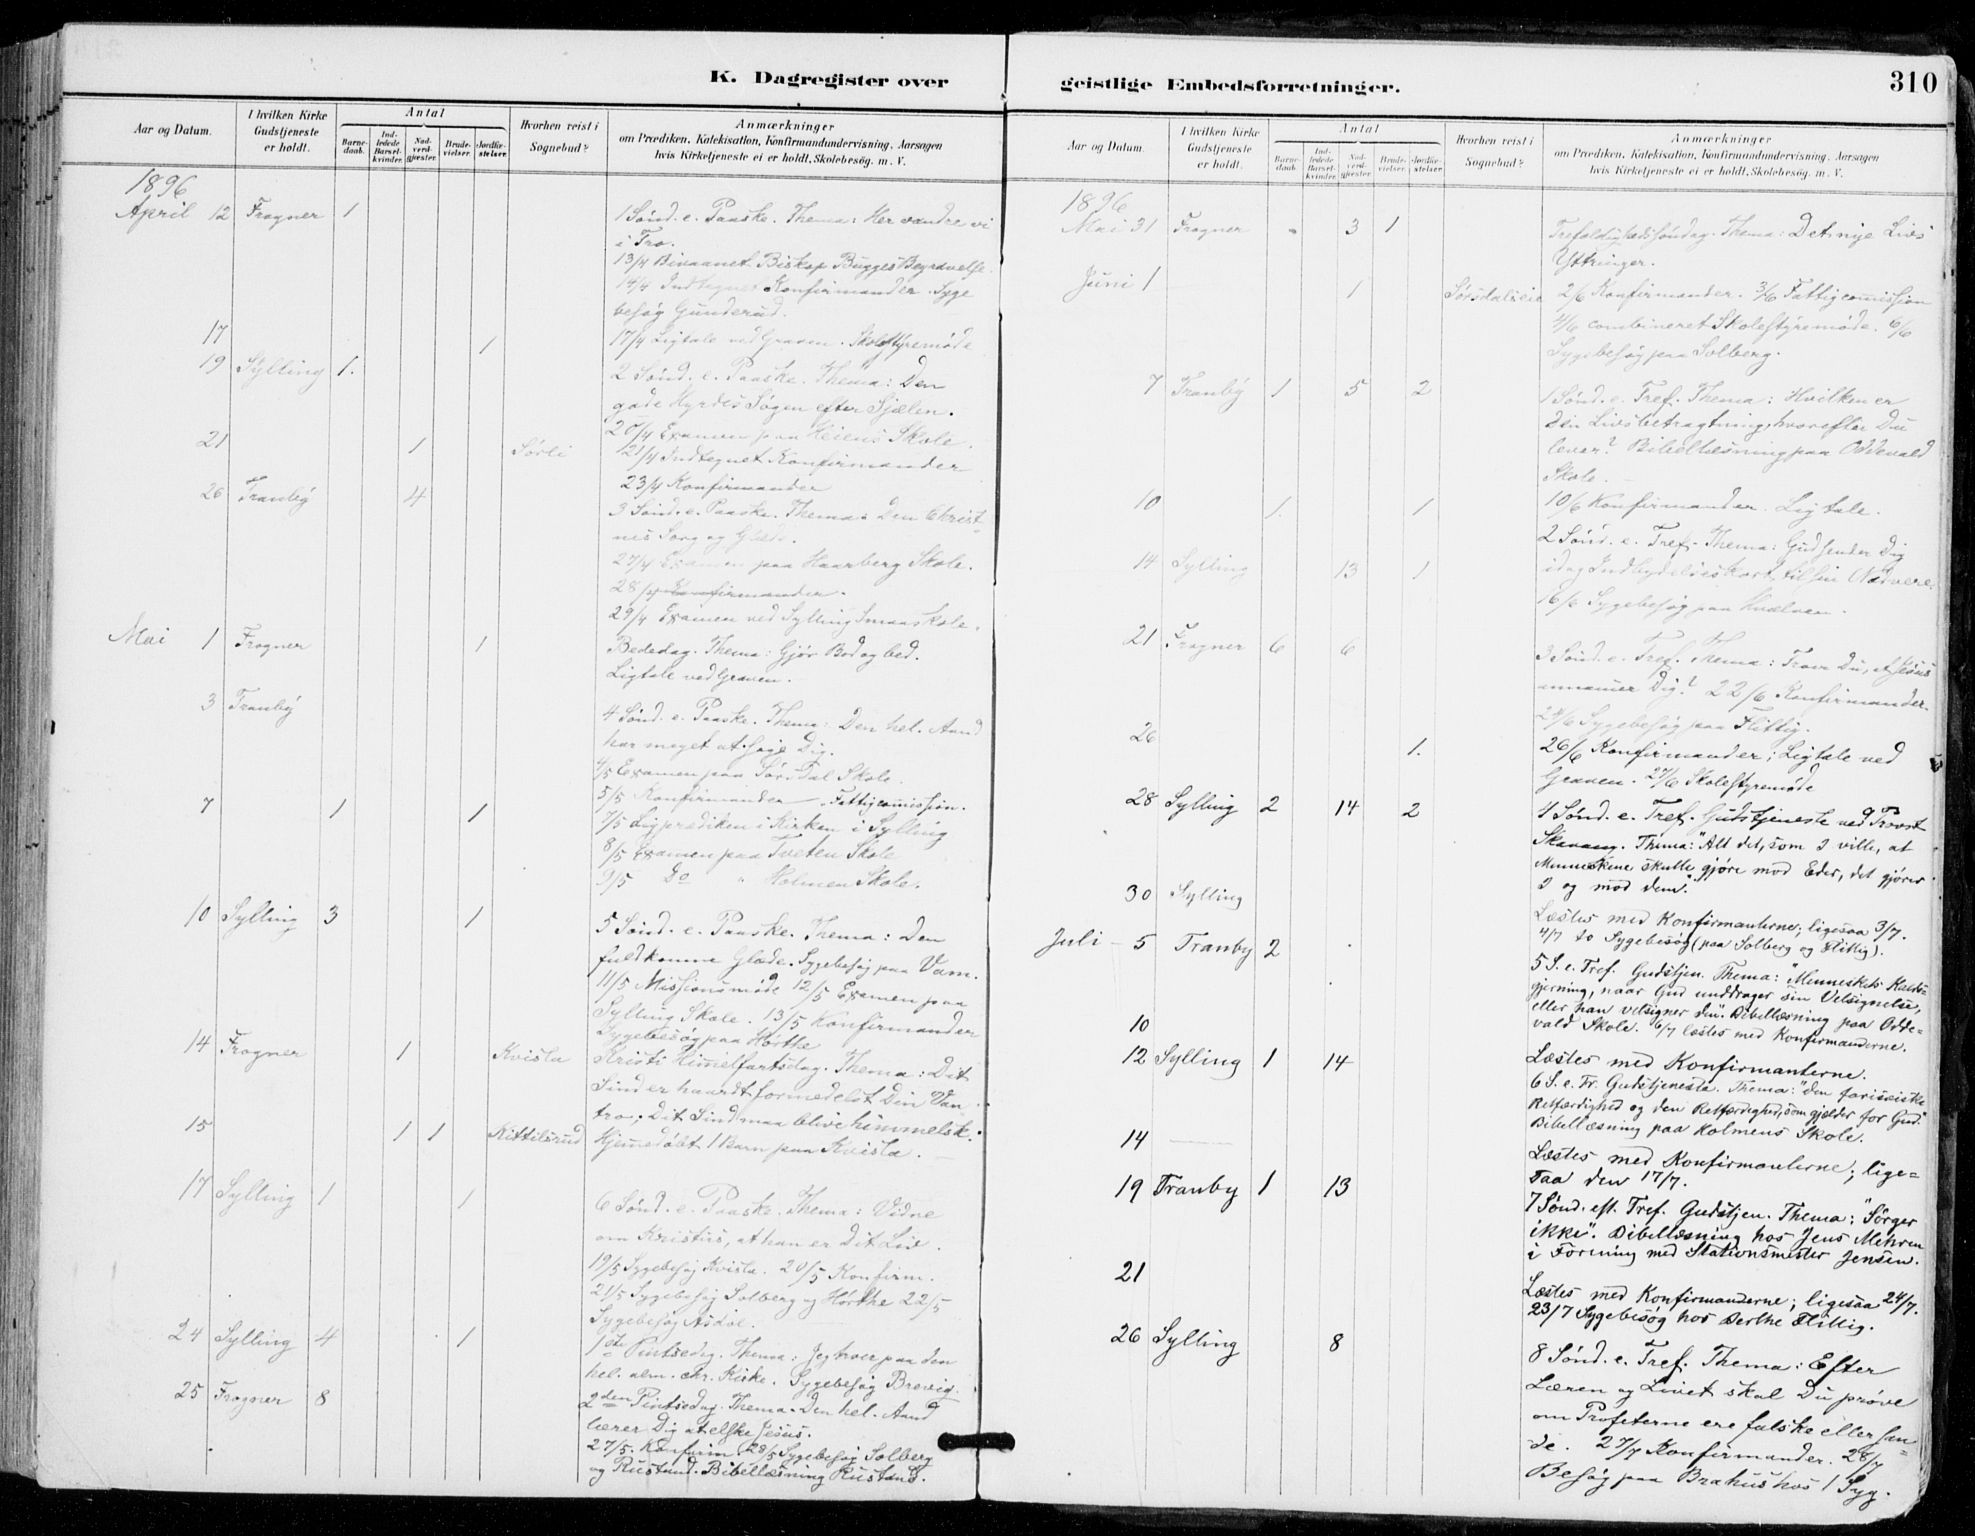 K. Dagregister over
geistlige Embedsforretninger.
310
Aar og Datum.
I hvilken Kirke Gudstjeneste er holdt.
Antal
Barnedaab.
Indledede Barselkvinder.
Nadverdgjester.
Brudevielser.
Jordfæstelser.
Hvorhen reist i Sognebud?
Anmærkninger
om Prædiken, Katekisation, Konfirmandundervisning, Aarsagen
hvis Kirketjeneste ei er holdt, Skolebesøg. m. V.
1896
April 12 Frogner 1 1 Sønd. e. Paaske. Thema: Her vandre vi
i Tro.
13/4 Bivaanet Biskop Bugges Begravelse.
14/4 Indtegnet Konfirmander. Syge
besøg Gunderud.
17 1 17/4 Ligtale ved Graven. Skolestyremøde
19 Sylling 1. 2 Sønd. e. Paaske. Thema: Den
gode Hyrdes Søgen efter Sjælen.
20/4 Examen paa Heiens Skole.
21 1 Sørli 21/4 Indtegnet Konfirmander
23/4 Konfirmander
26 Tranby 4 3 Sønd. e. Paaske. Thema: Den Christ-
nes Sorg og Glæde.
27/4 Examen paa Haarberg Skole.
28/4 Konfirmander.
29/4 Examen ved Sylling Smaaskole.
Mai 1 Frogner 1 Bededag. Thema: Gjør Bod og bed.
Ligtale ved Graven.
3 Tranby 4 Sønd. e. Paaske. Thema: Den hel. Aand
har meget at sige Dig.
4/5 Examen paa Sørsdal Skole.
5/5 Konfirmander - Fattigcommission.
7 1 1 7/5 Ligprædiken i Kirken i Sylling
8/5 Examen paa Tveten Skole
9/5 Do " Holmen Skole.
10 Sylling 3 1 5 Sønd. e. Paaske. Thema: Den
fuldkomne Glæde. Sygebesøg paa Vam.
11/5 Missionsmøde 12/5 Examen paa
Sylling Skole. 13/5 Konfirmander
Sygebesøg paa Hørthe
14 Frogner 1 Kvisla Kristi Himelfartsdag. Thema: Dit
Sind er haardt formedelst Din Van-
tro; Dit Sind maa blive himmelsk.
15 1 1 Kittilsrud Hjemedøbt 1 Barn paa Kvisla.
17 Sylling 1 1 6 Sønd. e. Paaske. Thema: Vidne
om Kristus, at han er Dit Liv.
19/5 Sygebesøg Kvisla. 20/5 Konfirm.
21/5 Sygebesøg Solberg og Hørthe 22/5
Sygebesøg Asdøl.
24 Sylling 4 1 1ste Pintsedag. Thema: Jeg troer paa den
hel. alm. chr. Kirke. Sygebesøg Brevig.
25 Frogner 8 2den Pintsedag. Thema. Den hel. Aand
lærer Dig at elske Jesus.
27/5. Konfirm 28/5 Sygebesøg Solberg
og Rustand. Bibellæsning Rustand.
Aar og Datum.
I hvilken Kirke Gudstjeneste er holdt.
Antal
Barnedaab.
Indledede Barselkvinder.
Nadverdgjester.
Brudevielser.
Jordfæstelser.
Hvorhen reist i Sognebud?
Anmærkninger
om Prædiken, Katekisation, Konfirmandundervisning, Aarsagen
hvis Kirketjeneste ei er holdt, Skolebesøg. m. V.
1896
Mai 31 Frogner 3 1 Trefoldighedssøndag. Thema: Det nye Livs
Yttringer.
Juni 1 1 Sørsdalseie 2/6 Konfirmander. 3/6 Fattigcommission
4/6 combineret Skolestyremøde. 6/6
Sygebesøg paa Solberg.
7 Tranby 1 5 2 1 Sønd. e. Tref. Thema: Hvilken er
Din Livsbetragtning, hvorefter Du
lever? Bibellæsning paa Oddevald
Skole.
10 1. 1 10/6 Konfirmander. Ligtale.
14 Sylling 13 1 2 Sønd. e. Tref. Thema: Gud sender Dig
idag Indbydelseskort til sin Nadvere.
16/6 Sygebesøg paa Kvælven.
21 Frogner 6 6 3 Sønd. e. Tref. Thema: Troer Du, at Jesus
annamer Dig? 22/6 Konfirmander.
24/6 Sygebesøg paa Flittig.
26 1. 26/6 Konfirmander; Ligtale ved
Graven. 27/6 Skolestyremøde
28 Sylling 2 14 2 4 Sønd. e. Tref. Gudstjeneste ved Provst
Skavang. Thema: "Alt det, som I ville, at
Menneskene skulle gjøre mod Eder, det gjører
I og mod dem".
30 Sylling Læstes med Konfirmanterne; ligesaa 3/7.
4/7 to Sygebesøg (paa Solberg og Flittig).
Juli - 5 Tranby 2 5 S. e. Tref. Gudstjen. Thema: "Menneskets Kalds-
gjerning, naar Gud unddrager sin Velsignelse,
eller han velsigner den". Bibellæsning paa Odde-
vald Skole. 6/7 læstes med Konfirmanderne.
10 Læstes med Konfirmanterne.
12 Sylling 1 14 6 S. e. Tr. Gudstjeneste. Thema: "Den fariseiske
Retfærdighed og den Retfærdighed, som gjælder for Gud".
Bibellæsning paa Holmens Skole.
14 Læstes med Konfirmanterne; lige-
saa den 17/7.
19 Tranby 1 13 7 Sønd. eft. Tref. Gudstjen. Thema: "Sørger
ikke". Bibellæsning hos Jens Mehren
i Forening med Stationsmester Jensen.
21 Læstes med Konfirmanderne; ligesaa 24/7.
23/7 Sygebesøg hos Berthe Flittig.
26 Sylling 8 8 Sønd. e. Tref. Thema: Efter
Læren og Livet skal Du prøve
om Profeterne ere falske eller san-
de. 27/7 Konfirmander. 28/7
Besøg paa Brakhus hos 1 Syg.